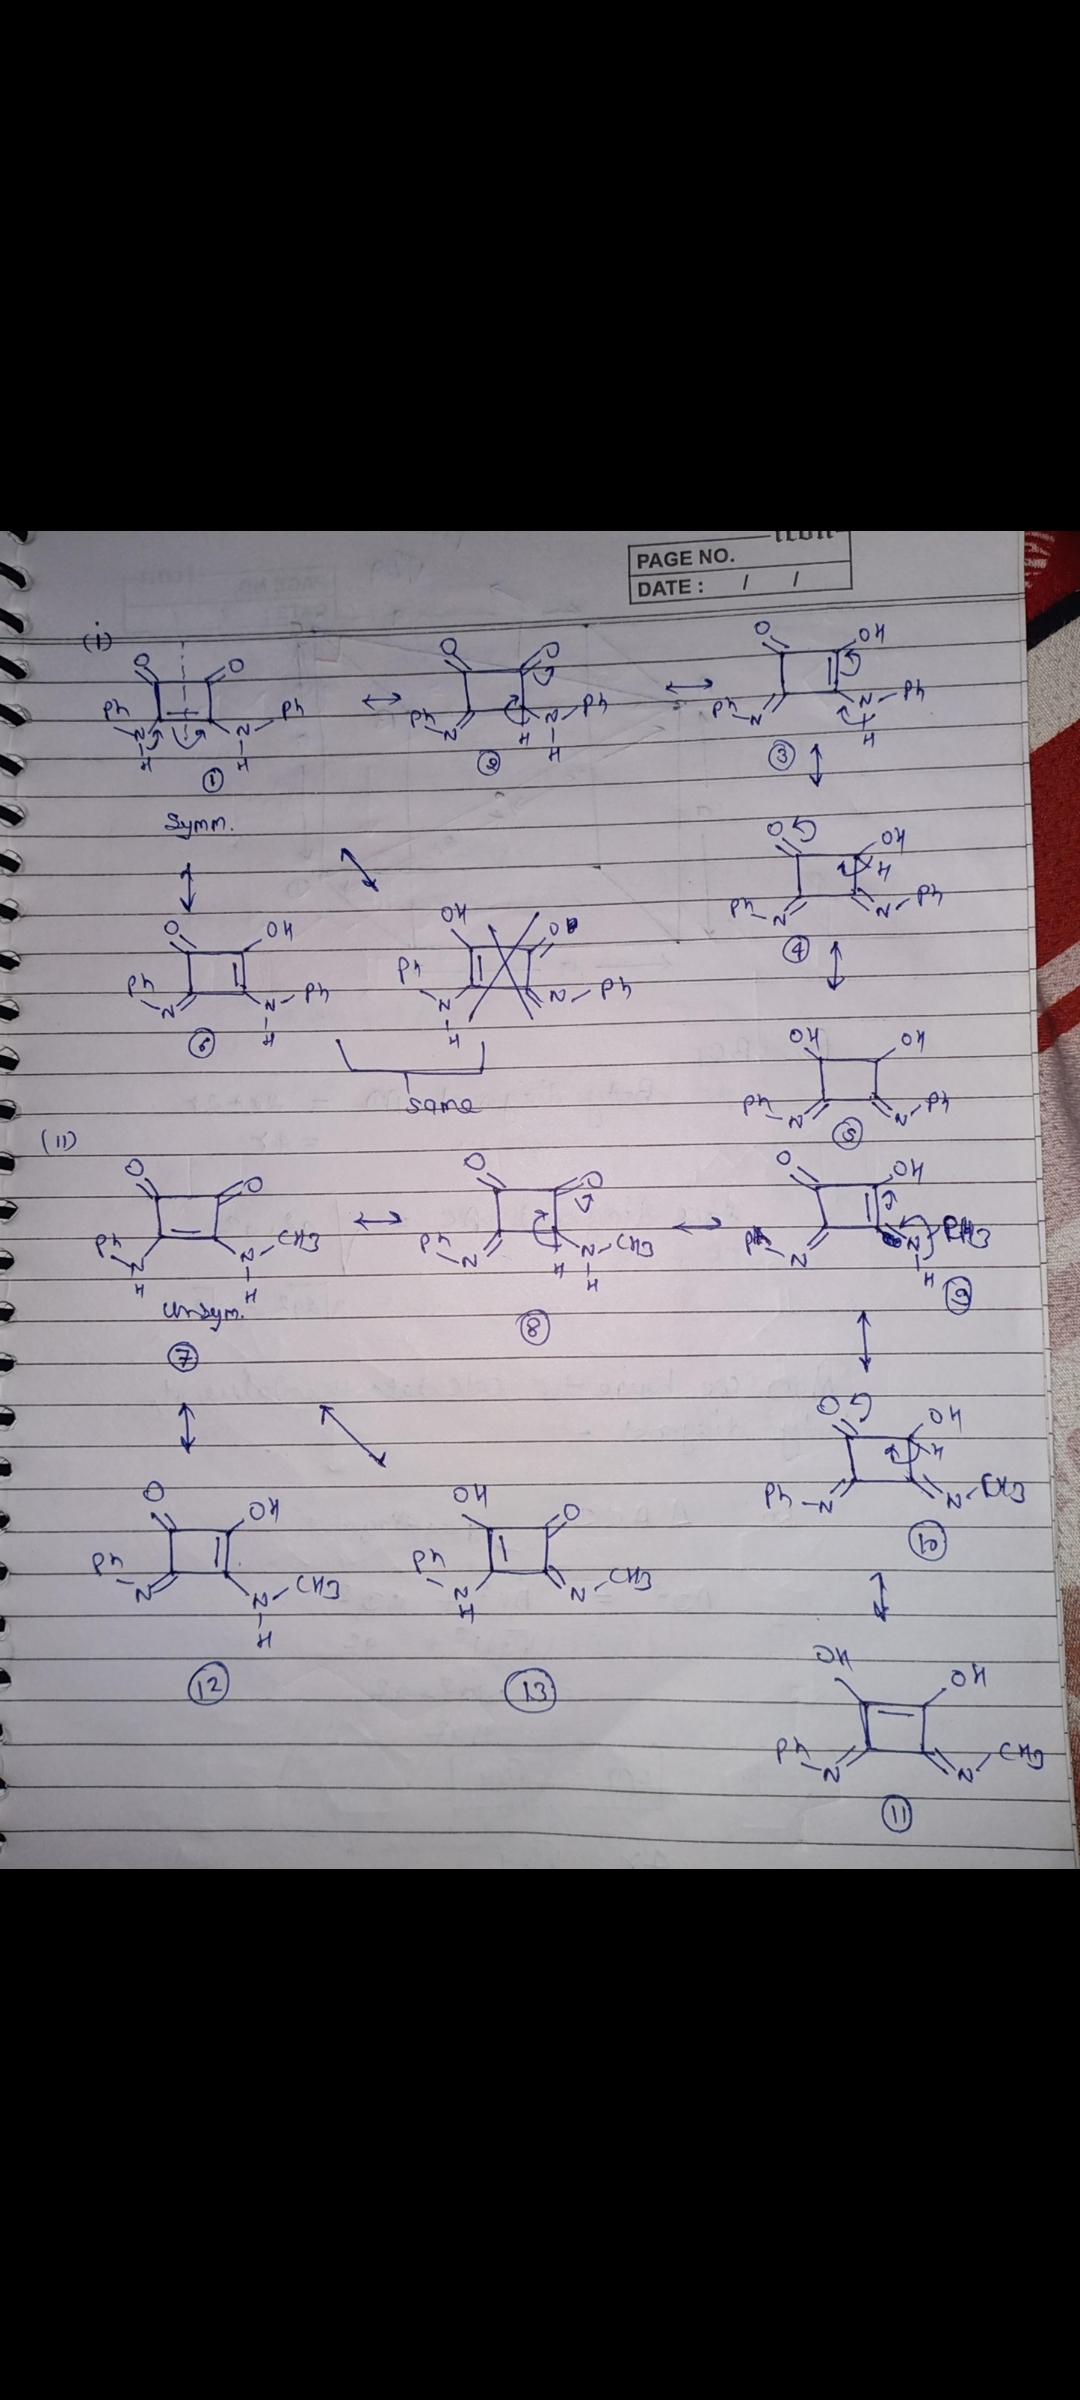 ICON
PAGE NO.
DATE : / /
(i)
O O Ph N H N H Ph
①
Symm.
O O Ph N H N H Ph
②
O OH Ph N N H Ph
③
O OH H Ph N N Ph
④
O OH Ph N N H Ph
⑥
OH O Ph N H N Ph
same
OH OH Ph N N Ph
⑤
(ii)
O O Ph N H N H CH3
Unsym.
⑦
O O Ph N H N H CH3
⑧
O OH Ph N N H CH3
⑨
O OH H Ph N N CH3
⑩
O OH Ph N N H CH3
⑫
OH O Ph N H N CH3
⑬
OH OH Ph N N CH3
⑪